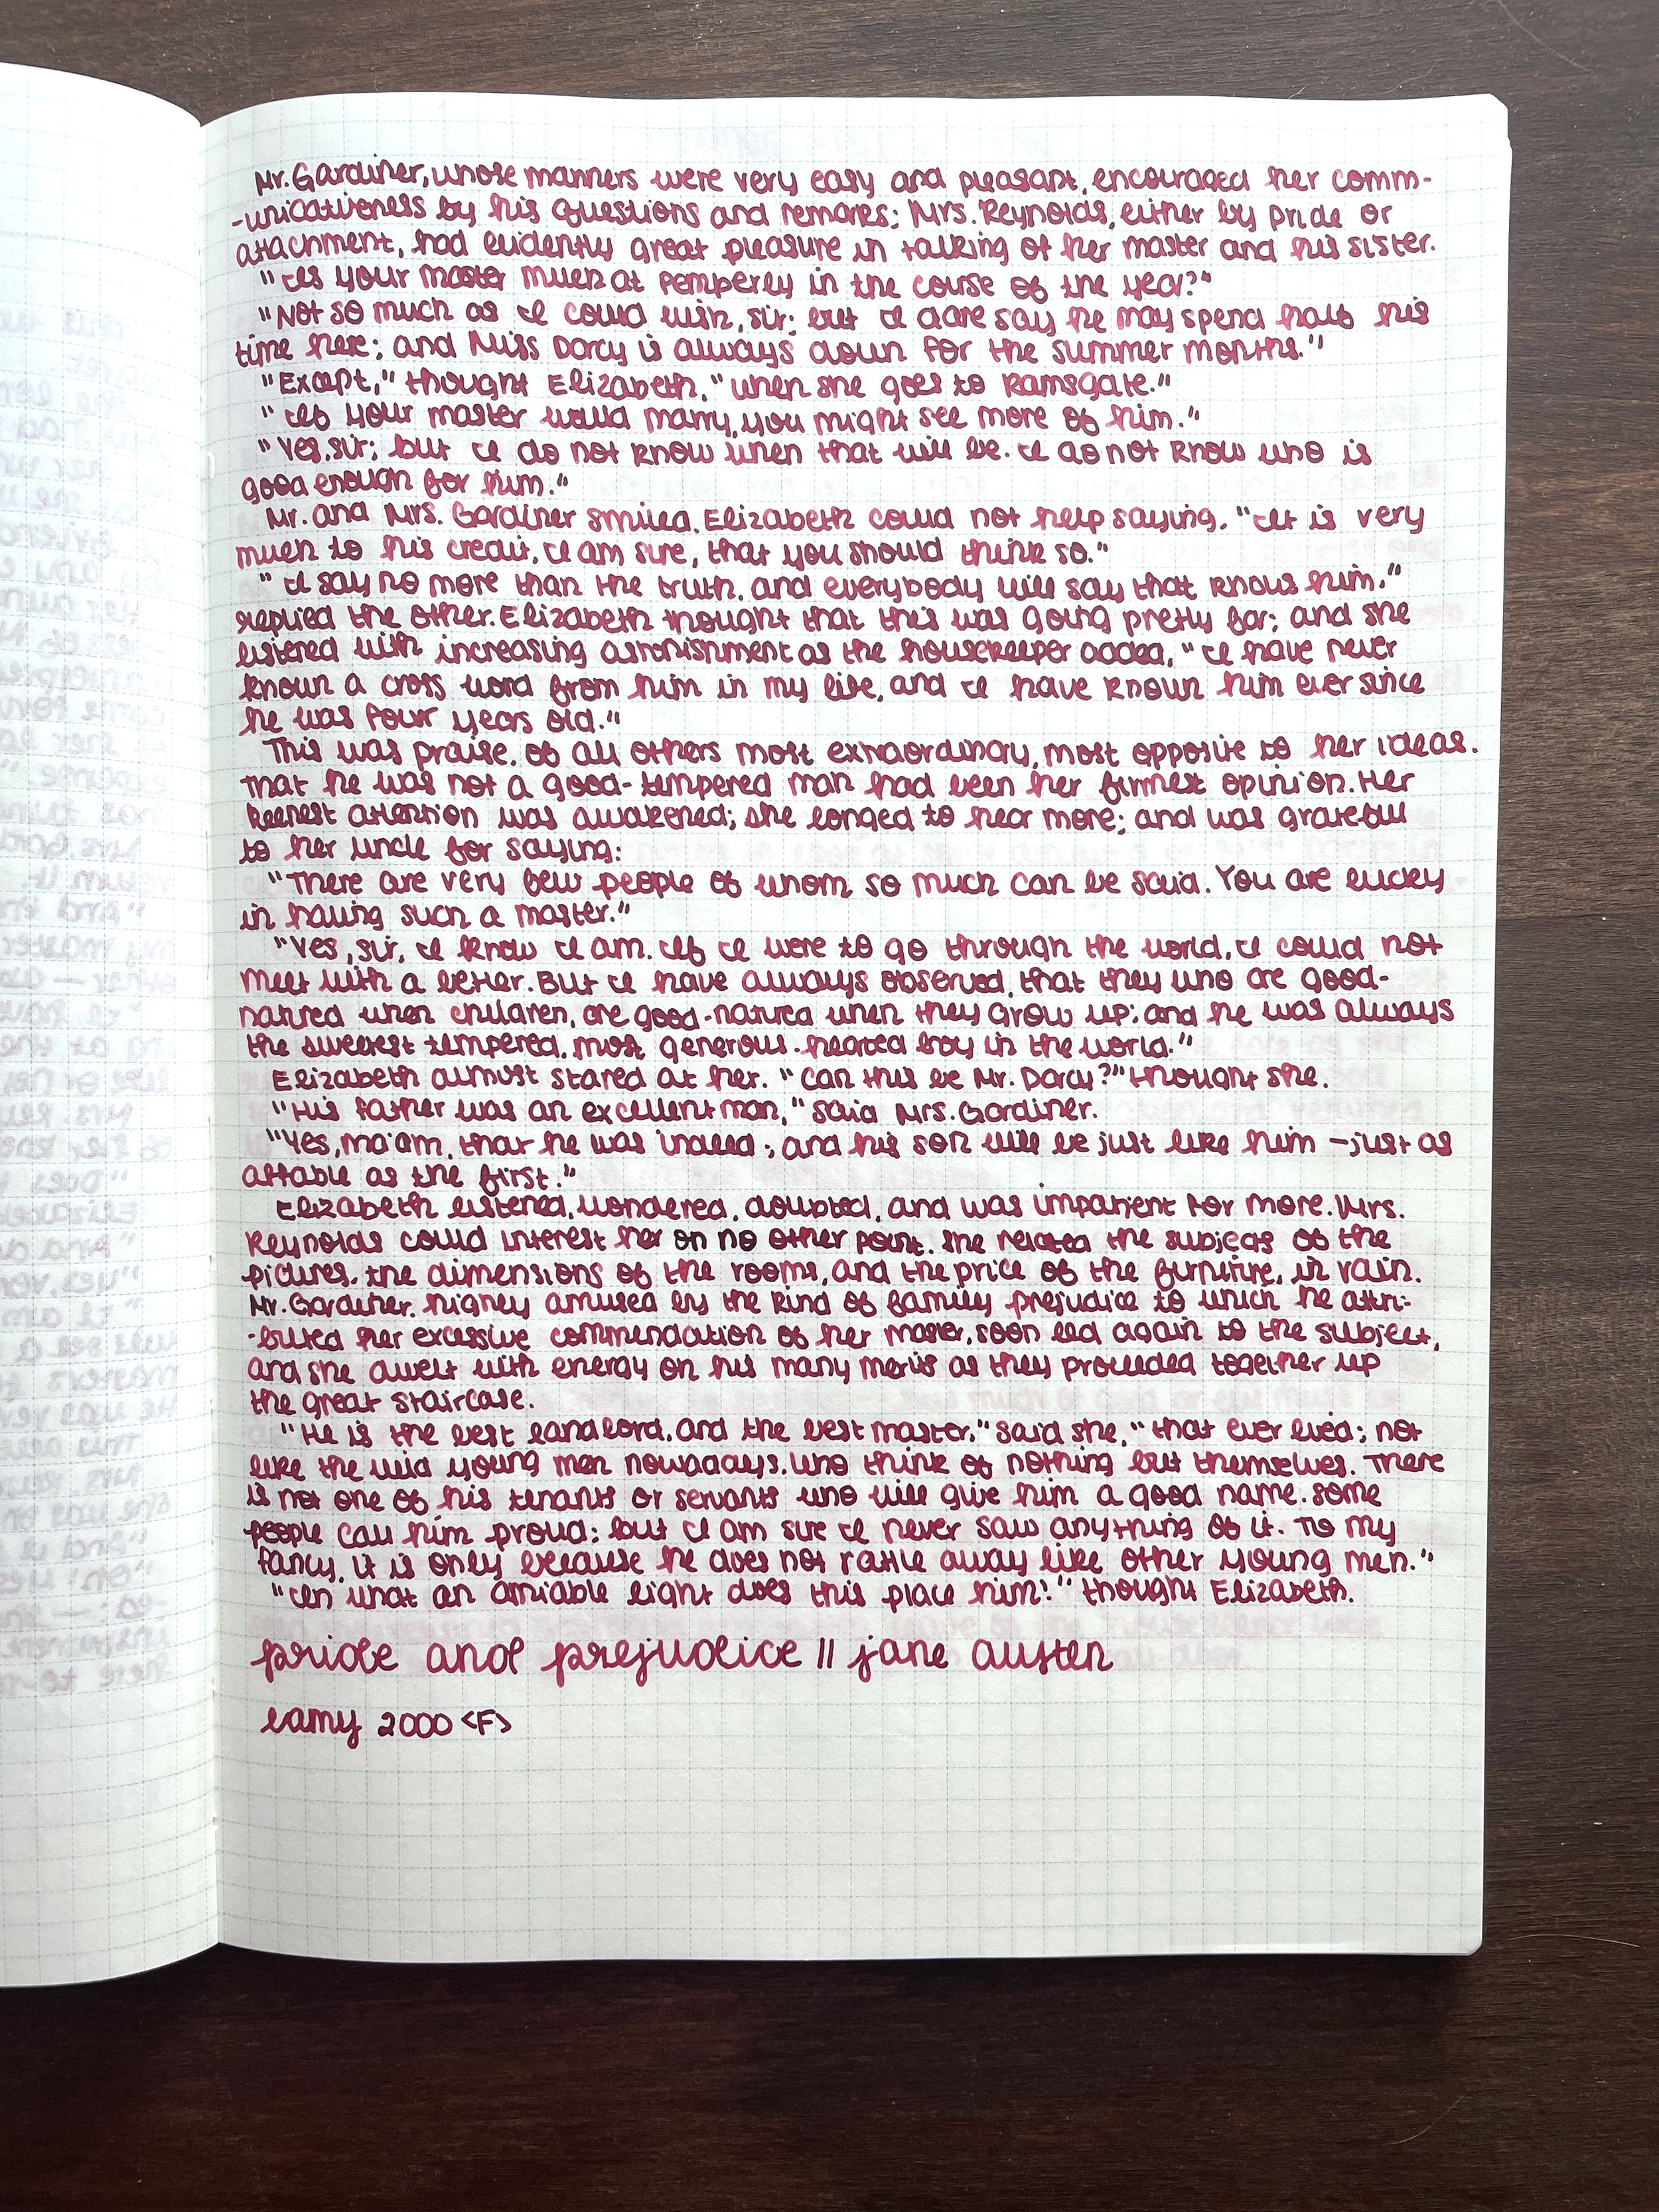 Mr. Gardiner, whose manners were very easy and pleasant, encouraged her comm-
-unicativeness by his questions and remarks; Mrs. Reynolds, either by pride or
attachment, had evidently great pleasure in talking of her master and his sister.
"Is your master much at Pemperley in the course of the year?"
"Not so much as I could wish, sir; but I dare say he may spend half his
time here; and Miss Darcy is always down for the summer months."
"Except," thought Elizabeth, "when she goes to Ramsgate."
"If your master would marry, you might see more of him."
"Yes, sir; but I do not know when that will be. I do not know who is
good enough for him."
Mr. and Mrs. Gardiner smiled. Elizabeth could not help saying, "It is very
much to his credit, I am sure, that you should think so."
"I say no more than the truth, and everybody will say that knows him,"
replied the other. Elizabeth thought that this was going pretty far; and she
listened with increasing astonishment as the housekeeper added, "I have never
known a cross word from him in my life, and I have known him ever since
he was four years old."
This was praise, of all others most extraordinary, most opposite to her ideas.
That he was not a good-tempered man had been her firmest opinion. Her
keenest attention was awakened; she longed to hear more; and was grateful
to her uncle for saying:
"There are very few people of whom so much can be said. You are lucky
in having such a master."
"Yes, sir, I know I am. If I were to go through the world, I could not
meet with a better. But I have always observed, that they who are good-
natured when children, are good-natured when they grow up; and he was always
the sweetest tempered, most generous-hearted boy in the world."
Elizabeth almost stared at her. "Can this be Mr. Darcy?" thought she.
"His father was an excellent man," said Mrs. Gardiner.
"Yes, ma'am, that he was indeed; and his son will be just like him —just as
affable as the first."
Elizabeth listened, wondered, doubted, and was impatient for more. Mrs.
Reynolds could interest her on no other point. She related the subjects of the
pictures, the dimensions of the rooms, and the price of the furniture, in vain.
Mr. Gardiner, highly amused by the kind of family prejudice to which he attri-
-buted her excessive commendation of her master, soon led again to the subject,
and she dwelt with energy on his many merits as they proceeded together up
the great staircase.
"He is the best landlord, and the best master," said she, "that ever lived; not
like the wild young men nowadays, who think of nothing but themselves. There
is not one of his tenants or servants who will give him a good name. Some
people call him proud; but I am sure I never saw anything of it. To my
fancy, it is only because he does not rattle away like other young men."
"In what an amiable light does this place him!" thought Elizabeth.
pride and prejudice || jane austen
lamy 2000 <F>